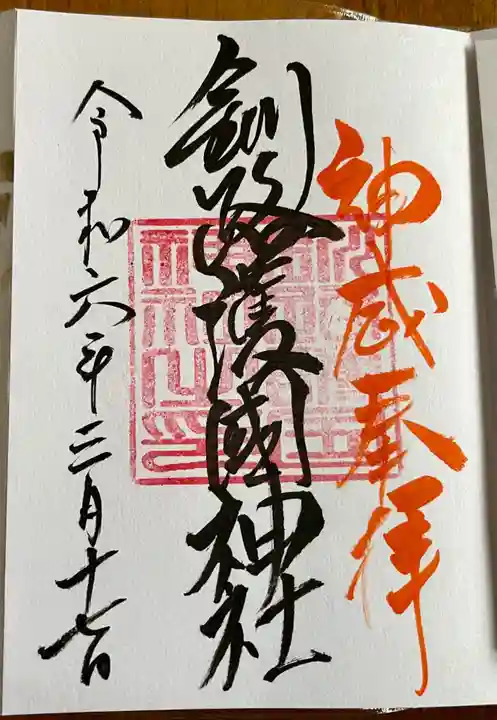 神威奉拝
釧路護國神社
令和六年三月十七日